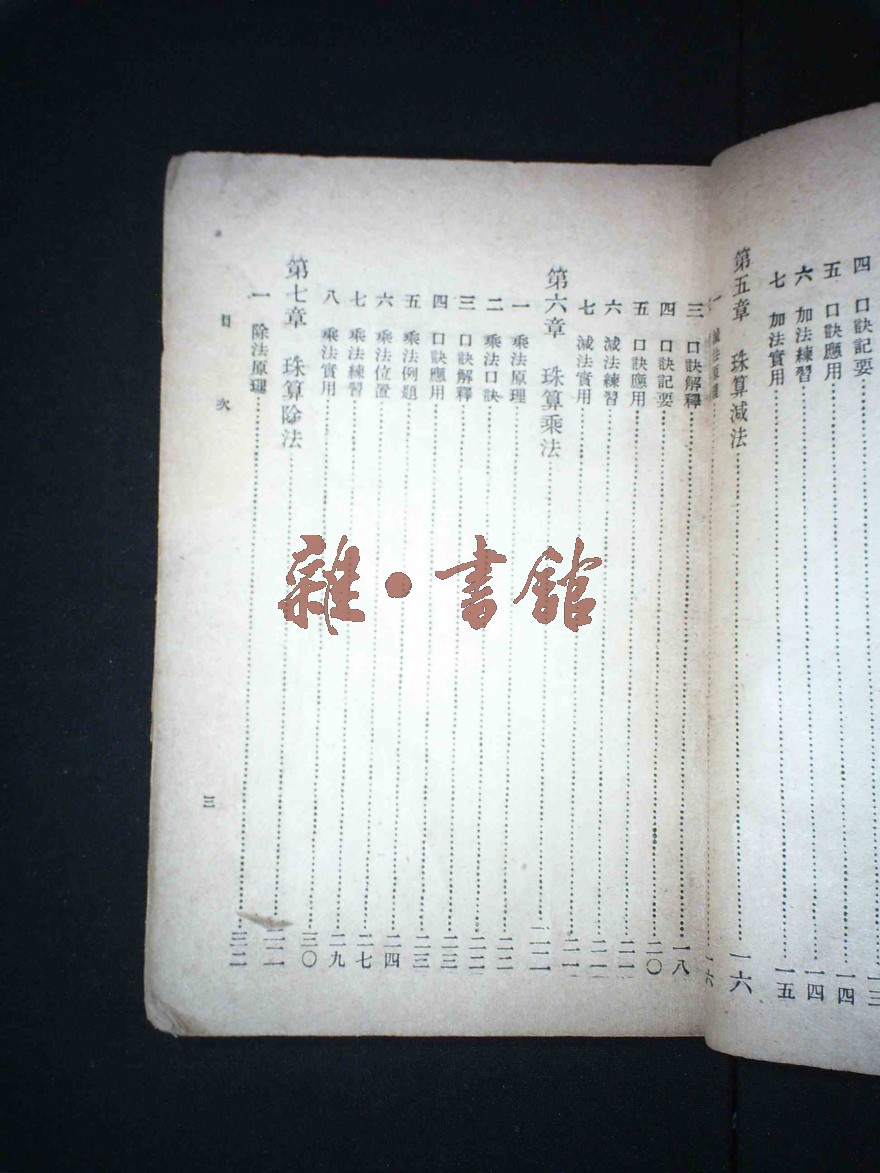 四 口訣記要 一三
五 口訣應用 一四
六 加法練習 一四
七 加法實用 一五
第五章 珠算減法 一六
一 減法原理 一六
三 口訣解釋 一八
四 口訣記要 二〇
五 口訣應用
六 減法練習
七 減法實用
第六章 珠算乘法
一 乘法原理 二二
二 乘法口訣 二二
三 口訣解釋 二三
四 口訣應用 二三
五 乘法例題 二四
六 乘法位置 二七
七 乘法練習 二九
八 乘法實用 三〇
第七章 珠算除法
一 除法原理 三二
目次
三
雜·書館